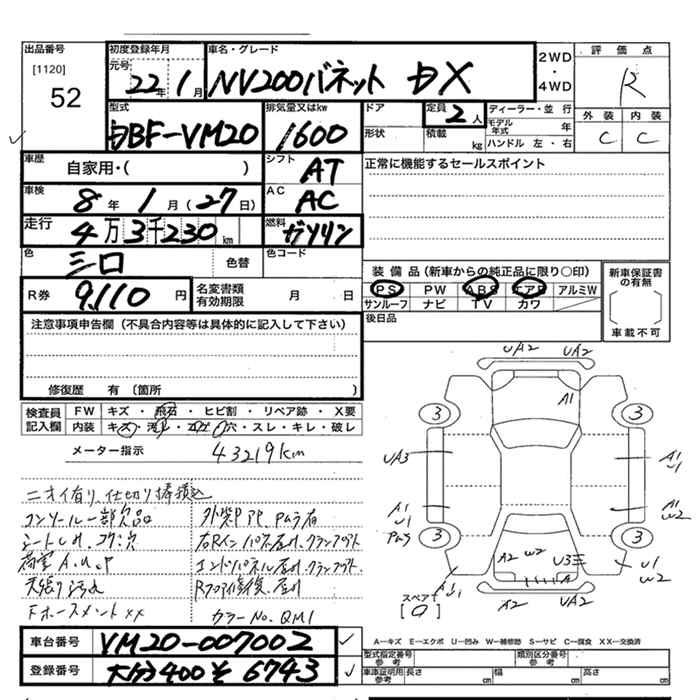 出品番号 初度登録年月 車名・グレード 2WD・4WD 評価点
[1120] 元号 22年 1月 NV200バネット DX R
52 型式 排気量又はkw ドア 定員 2人 ディーラー・並行 外装 内装
モデル年式 年 C C
BF-VM20 1600 形状 積載 kg ハンドル 左・右
車歴 自家用・( ) シフト AT 正常に機能するセールスポイント
車検 8年 1月(27日) AC AC
走行 4万3千230km 燃料 ガソリン
色 シロ 色替 色コード
装備品(新車からの純正品に限り○印) 新車保証書の有無
R券 9,110円 名変書類有効期限 月 日 PS PW ABS エアB アルミW
サンルーフ ナビ TV カワ
車載不可
注意事項申告欄(不具合内容等は具体的に記入して下さい) 後日品
修復歴 有(箇所 )
検査員記入欄 FW キズ・飛石・ヒビ割・リペア跡・X要
内装 キズ・汚レ・コゲ穴・スレ・キレ・破レ
メーター指示 43219km
ニオイ有り、仕切り棒積込
コンソール一部欠品
シートヒレ、コゲ穴
荷室A.U.P
天張り汚れ
Fホースメントxx
カラーNo.QM1
UA2 UA2
A1
3 3
UA3 A1 U1
A1 U1 A1 W2
3 3
A2 W2 U3 A
U1 W2
スペア [0] A2 UA2
車台番号 VM20-007002
登録番号 大分400せ6743
A―キズ E―エクボ U―凹み W―補修跡 S―サビ C―腐食 XX―交換済
型式指定番号参考 類別区分番号参考
車庫証明用参考 長さ cm 幅 cm 高さ cm